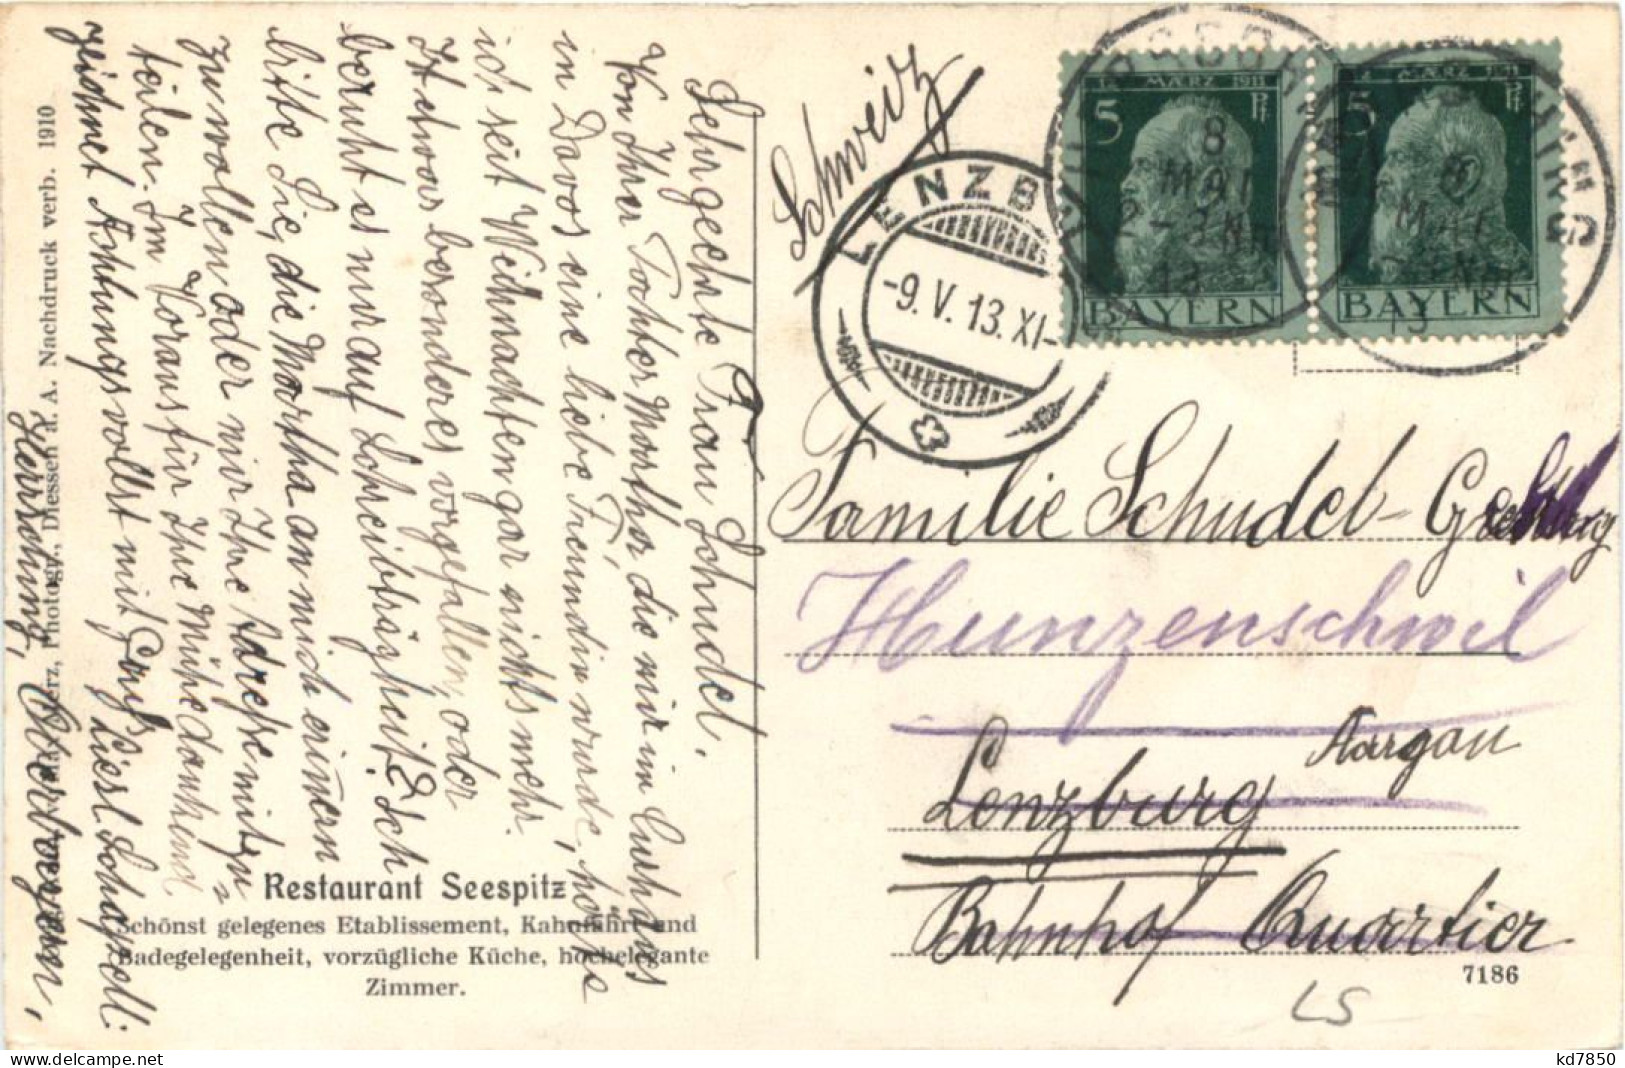 Sehrgeehrte Frau Schudel,
Von Ihrer Tochter Martha, die mir im Curhaus
in Davos eine liebe Freundin wurde, hörte
ich seit Weihnachten gar nichts mehr.
Ist etwas besonderes vorgefallen, oder
beruht es nur auf Schreibträgheit? Ich
bitte Sie, die Martha an mich erinnern
zu wollen oder mir Ihre Adresse mitzu=
teilen. Im Voraus für Ihre Mühe dankend
zeichnet Achtungsvollst mit Gruß
Liesl Schapelli
Herrsching, Oberbayern,
Nachdruck verb. 1910
Photogr., Diessen a. A.
Restaurant Seespitz
Schönst gelegenes Etablissement, Kahnfahrt und
Badegelegenheit, vorzügliche Küche, hochelegante
Zimmer.
Schweiz
12. MÆRZ 1911
5 Pf
BAYERN
12. MÆRZ 1911
5 Pf
BAYERN
8 MAI
2-3 Nm
13
8 MAI
13
LENZB
-9.V.13.XI-
Familie Schudel-
Hunzenschwil
Aargau
Lenzburg
Bahnhof Quartier
7186
LS
kd7850